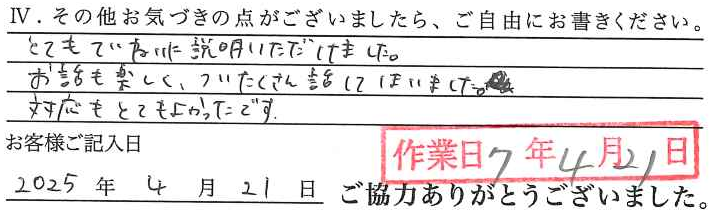 Ⅳ．その他お気づきの点がございましたら、ご自由にお書きください。
とてもていねいに説明いただけました。
お話も楽しく、ついたくさん話してしまいました。
対応もとてもよかったです。
お客様ご記入日
作業日7年4月21日
2025年4月21日
ご協力ありがとうございました。